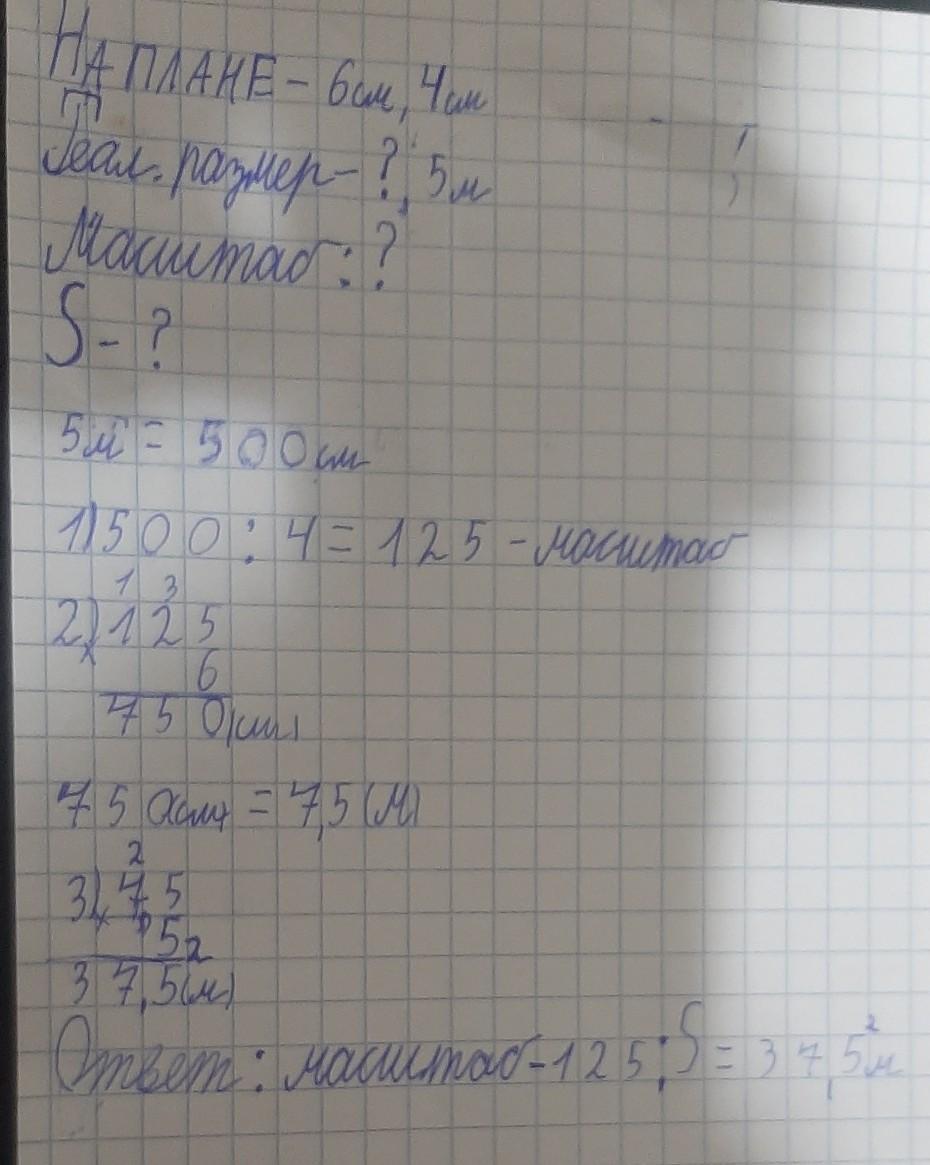 НА ПЛАНЕ - 6см, 4см
Реал. размер - ?, 5м
Масштаб : ?
S - ?
5м = 500см
1) 500 : 4 = 125 - масштаб
1 3
2) 125
× 6
750(см)
750(см) = 7,5(м)
2
3) 7,5
× 5
37,5(м²)
Ответ : масштаб - 125 ; S = 37,5м²